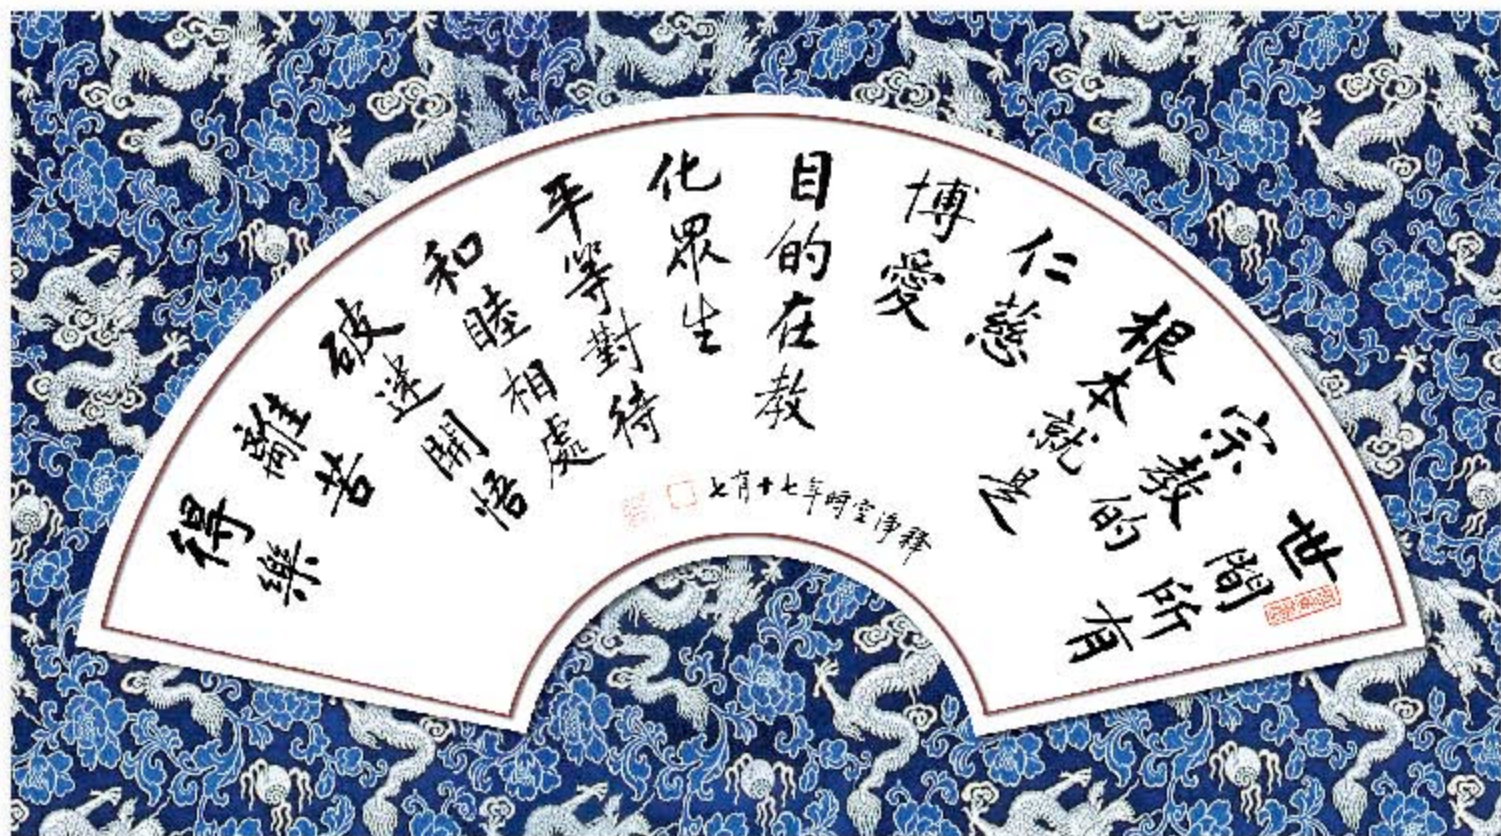 世間所有
宗教的
根本就是
仁慈
博愛
目的在教
化眾生
平等對待
和睦相處
破迷開悟
離苦
得樂
釋淨空時年七十有七